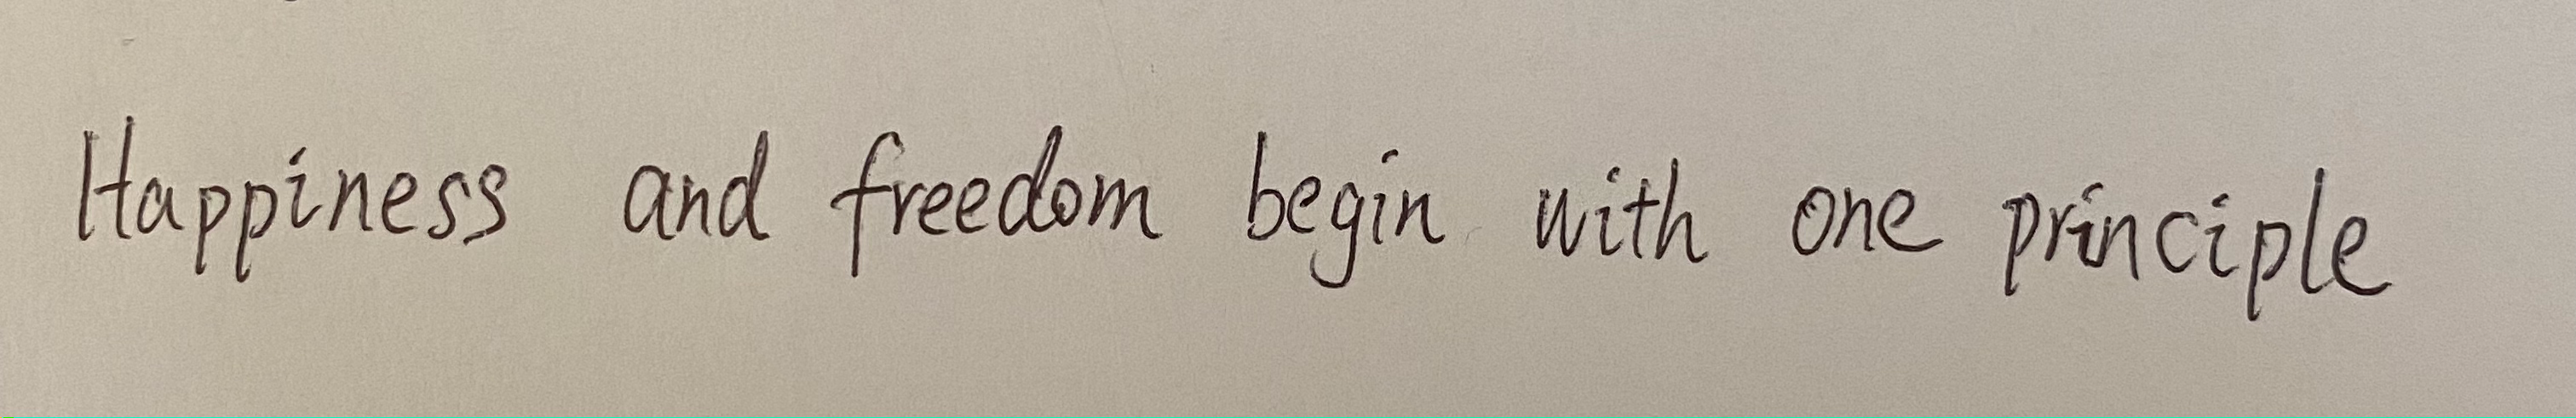 Happiness and freedom begin with one principle